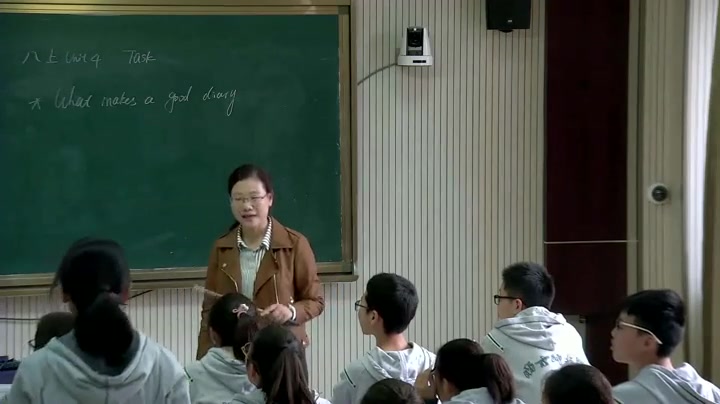 八上 Unit 4 Task
* What makes a good diary